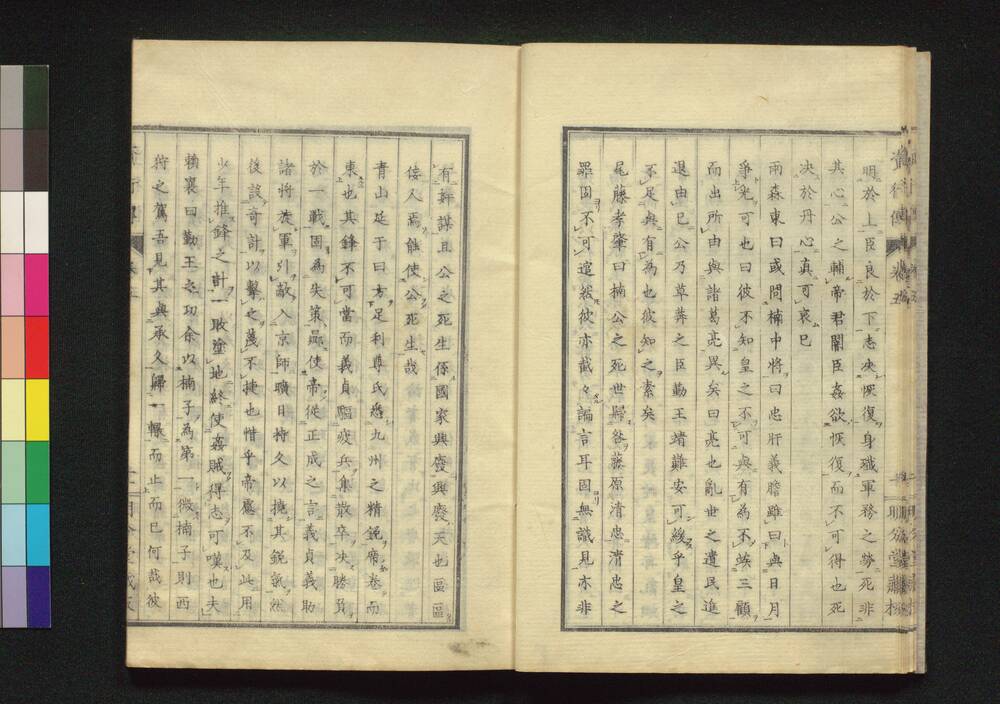 明於上臣良於下志決恢復身殲軍務之勞死非
其心公之輔帝君闇臣姦欲恢復而不可得也死
決於丹心真可哀已
雨森東曰或問楠中將曰忠肝義膽雖曰與日月
爭光可也曰彼不知皇之不可與有為不竢三顧
而出所由與諸葛亮異矣曰亮也亂世之遺民進
退由已公乃草莽之臣勤王靖難安可緩乎皇之
不足與有為也彼知之素矣
尾藤孝肇曰楠公之死世歸咎藤原清忠清忠之
罪固不可逭然彼亦截々諞言耳固無識見亦非
有奸謀且公之死生係國家興廢興廢天也區區
倭人焉能使公死生哉
青山延于曰方足利尊氏悉九州之精銳席卷而
東也其鋒不可當而義貞驅疲兵集散卒決勝負
於一戰固為失策曏使帝從正成之言義貞義助
諸將旋軍引敵入京師曠日持久以撓其銳氣然
後設奇計以擊之蔑不捷也惜乎帝慮不及此用
少年推鋒之計一敗塗地終使姦賊得志可嘆也夫
賴襄曰勤王之功余以楠子為第一微楠子則西
狩之駕吾見其與承久歸一轍而止而已何哉彼